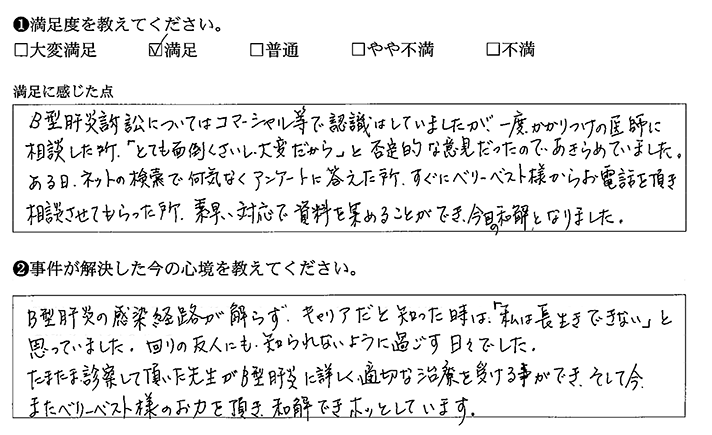 ❶満足度を教えてください。
□大変満足 ☑満足 □普通 □やや不満 □不満
満足に感じた点
B型肝炎訴訟についてはコマーシャル等で認識はしていましたが、一度かかりつけの医師に
相談した所、「とても面倒くさいし、大変だから」と否定的な意見だったので、あきらめていました。
ある日、ネットの検索で何気なくアンケートに答えた所、すぐにベリーベスト様からお電話を頂き
相談させてもらった所、素早い対応で資料を集めることができ、今日の和解となりました。
❷事件が解決した今の心境を教えてください。
B型肝炎の感染経路が解らず、キャリアだと知った時は、「私は長生きできない」と
思っていました。回りの友人にも、知られないように過ごす日々でした。
たまたま診察して頂いた先生がB型肝炎に詳しく、適切な治療を受ける事ができ、そして今、
またベリーベスト様のお力を頂き、和解できホッとしています。